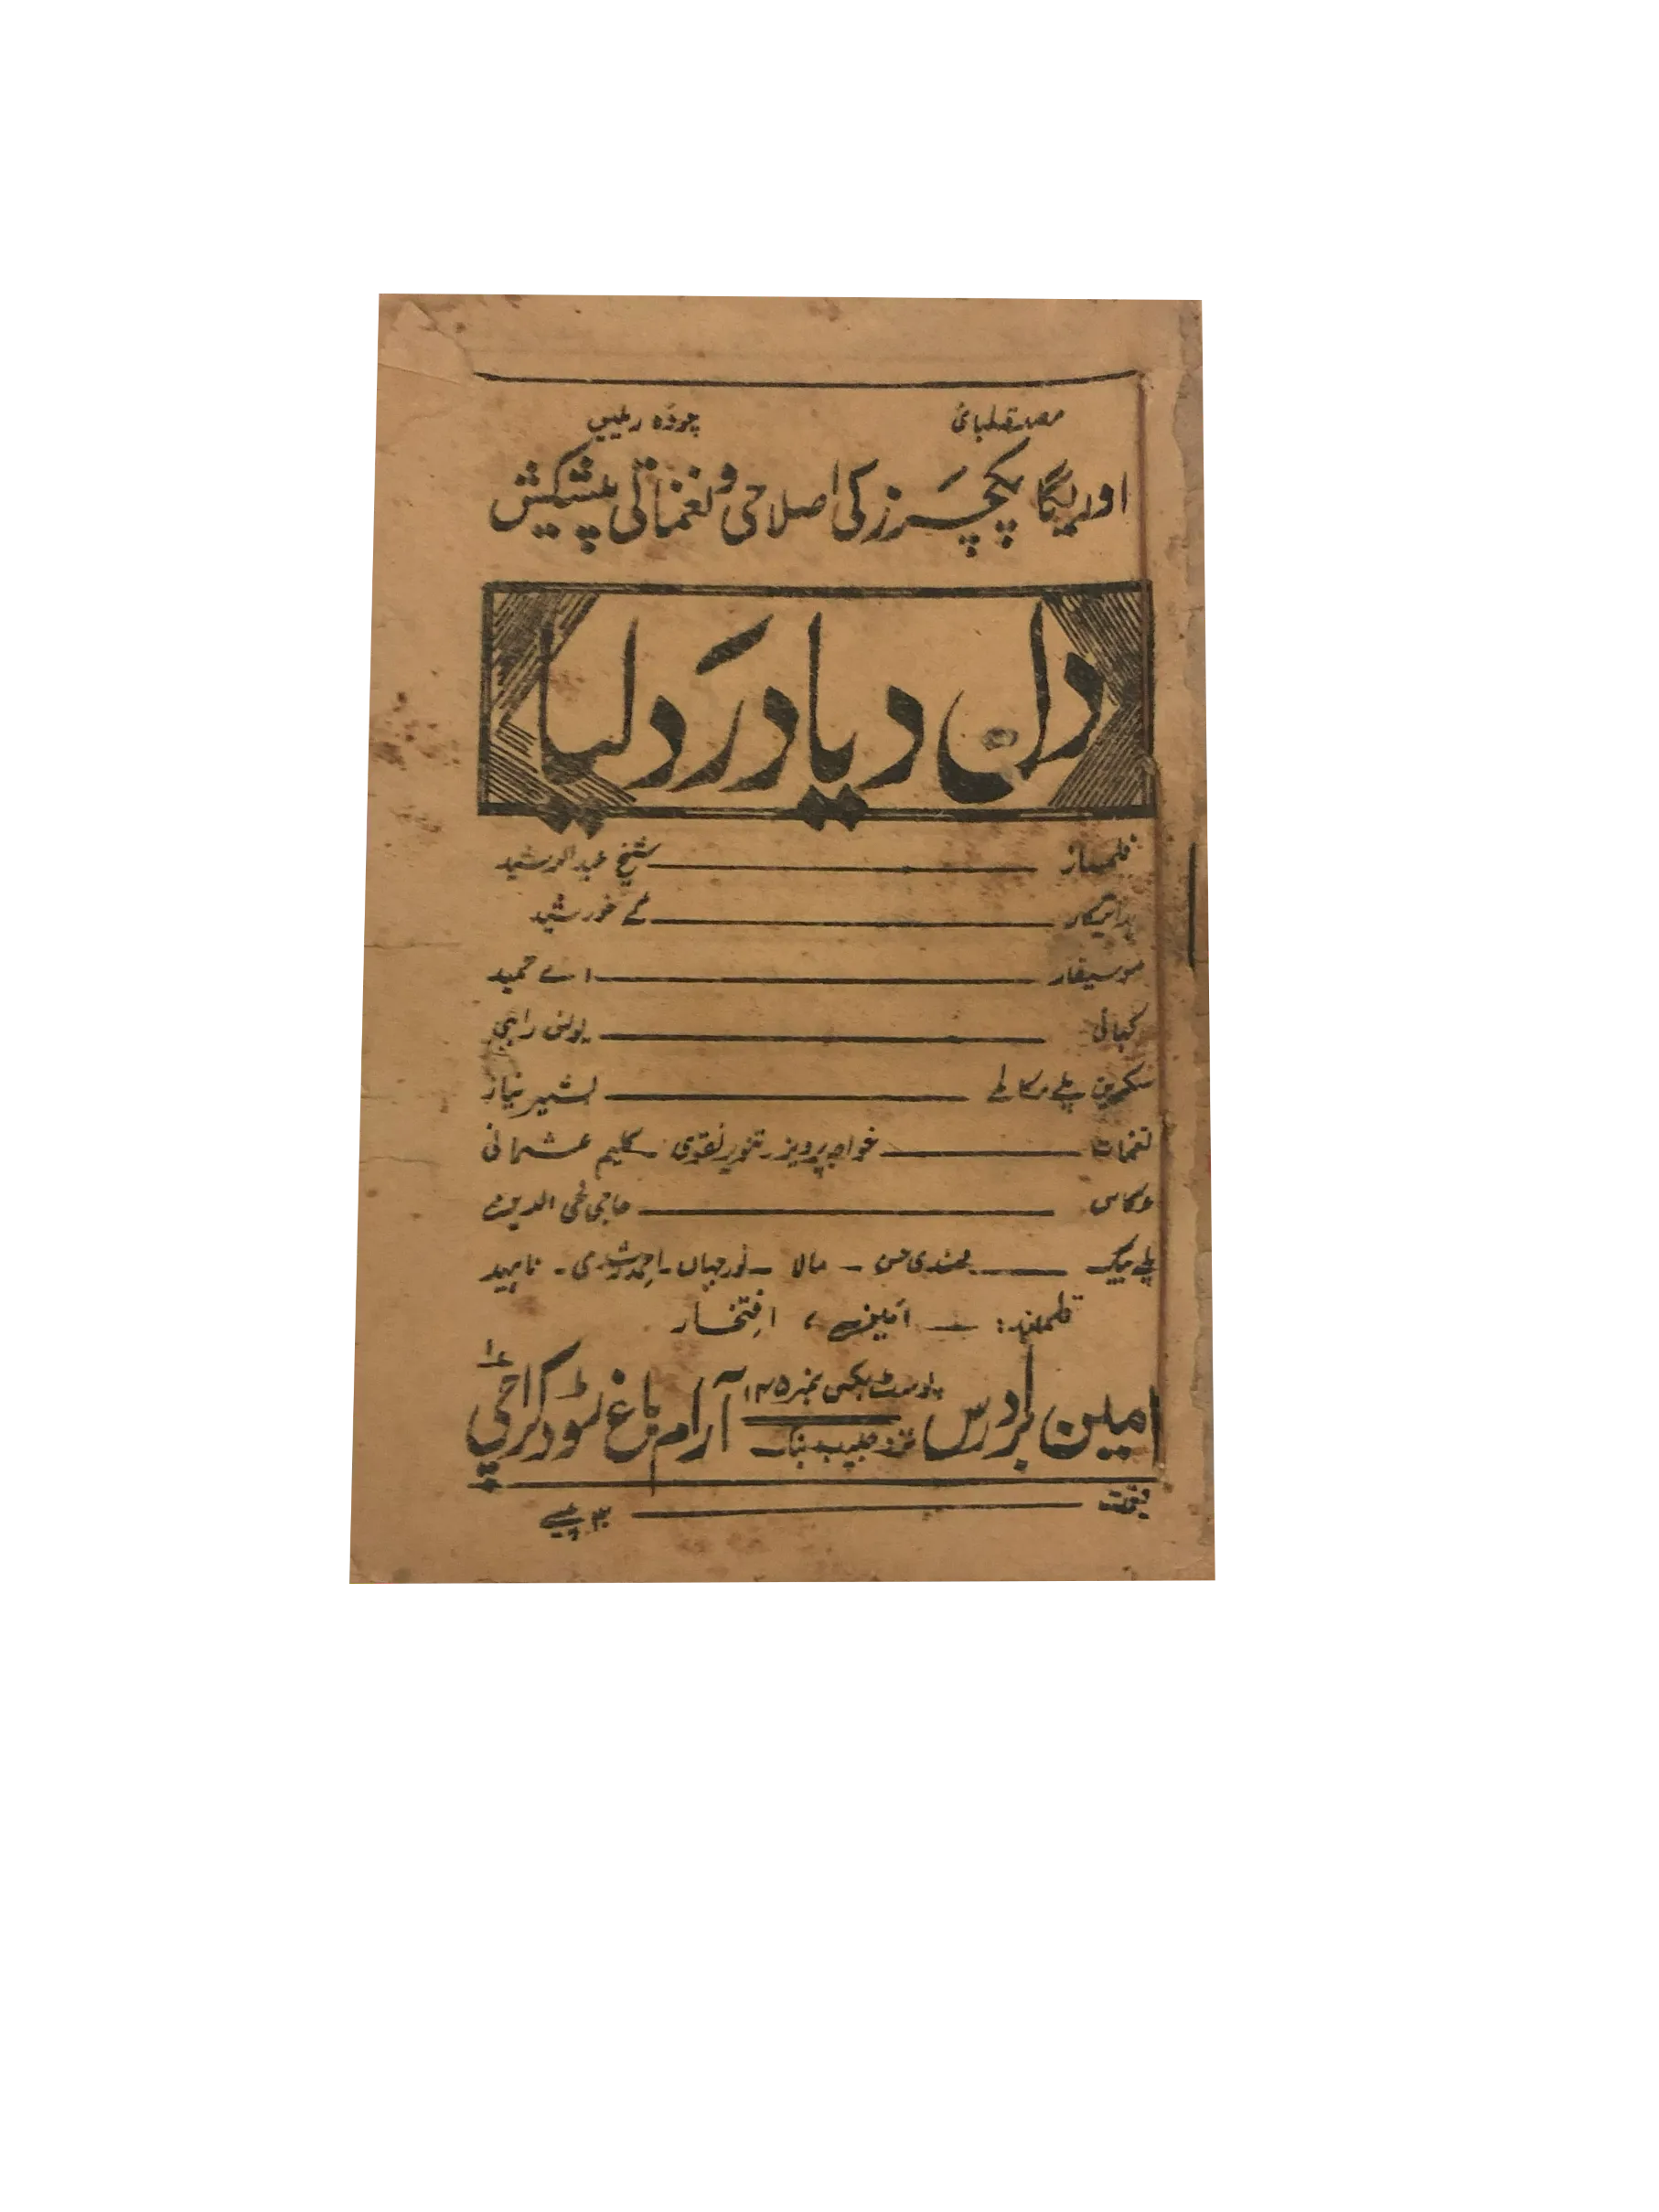 مصدقہ لمبائی چودہ ریلیں
اوریگا پکچرز کی اصلاحی و نغماتی پیشکش
دل دیا درد لیا
فلمساز ـــ شیخ عبدالرشید
ہدایتکار ـــ کے خورشید
موسیقار ـــ اے حمید
کہانی ـــ یونس راہی
سکرین پلے مکالمے ـــ بشیر نیاز
نغمات ـــ خواجہ پرویز ۔ تنویر نقوی ۔ کلیم عثمانی
عکاس ـــ حاجی محی الدین
پلے بیک ـــ مہندی حسن ۔ مالا ۔ نورجہاں ۔ احمد رشدی ۔ ناہید
قلمبند : ـــ امین ، افتخار
امین برادرس پوسٹ بکس نمبر ۱۲۵ نزد حبیب بنک آرام باغ روڈ کراچی ۱
قیمت ـــ ۳۰ پیسے